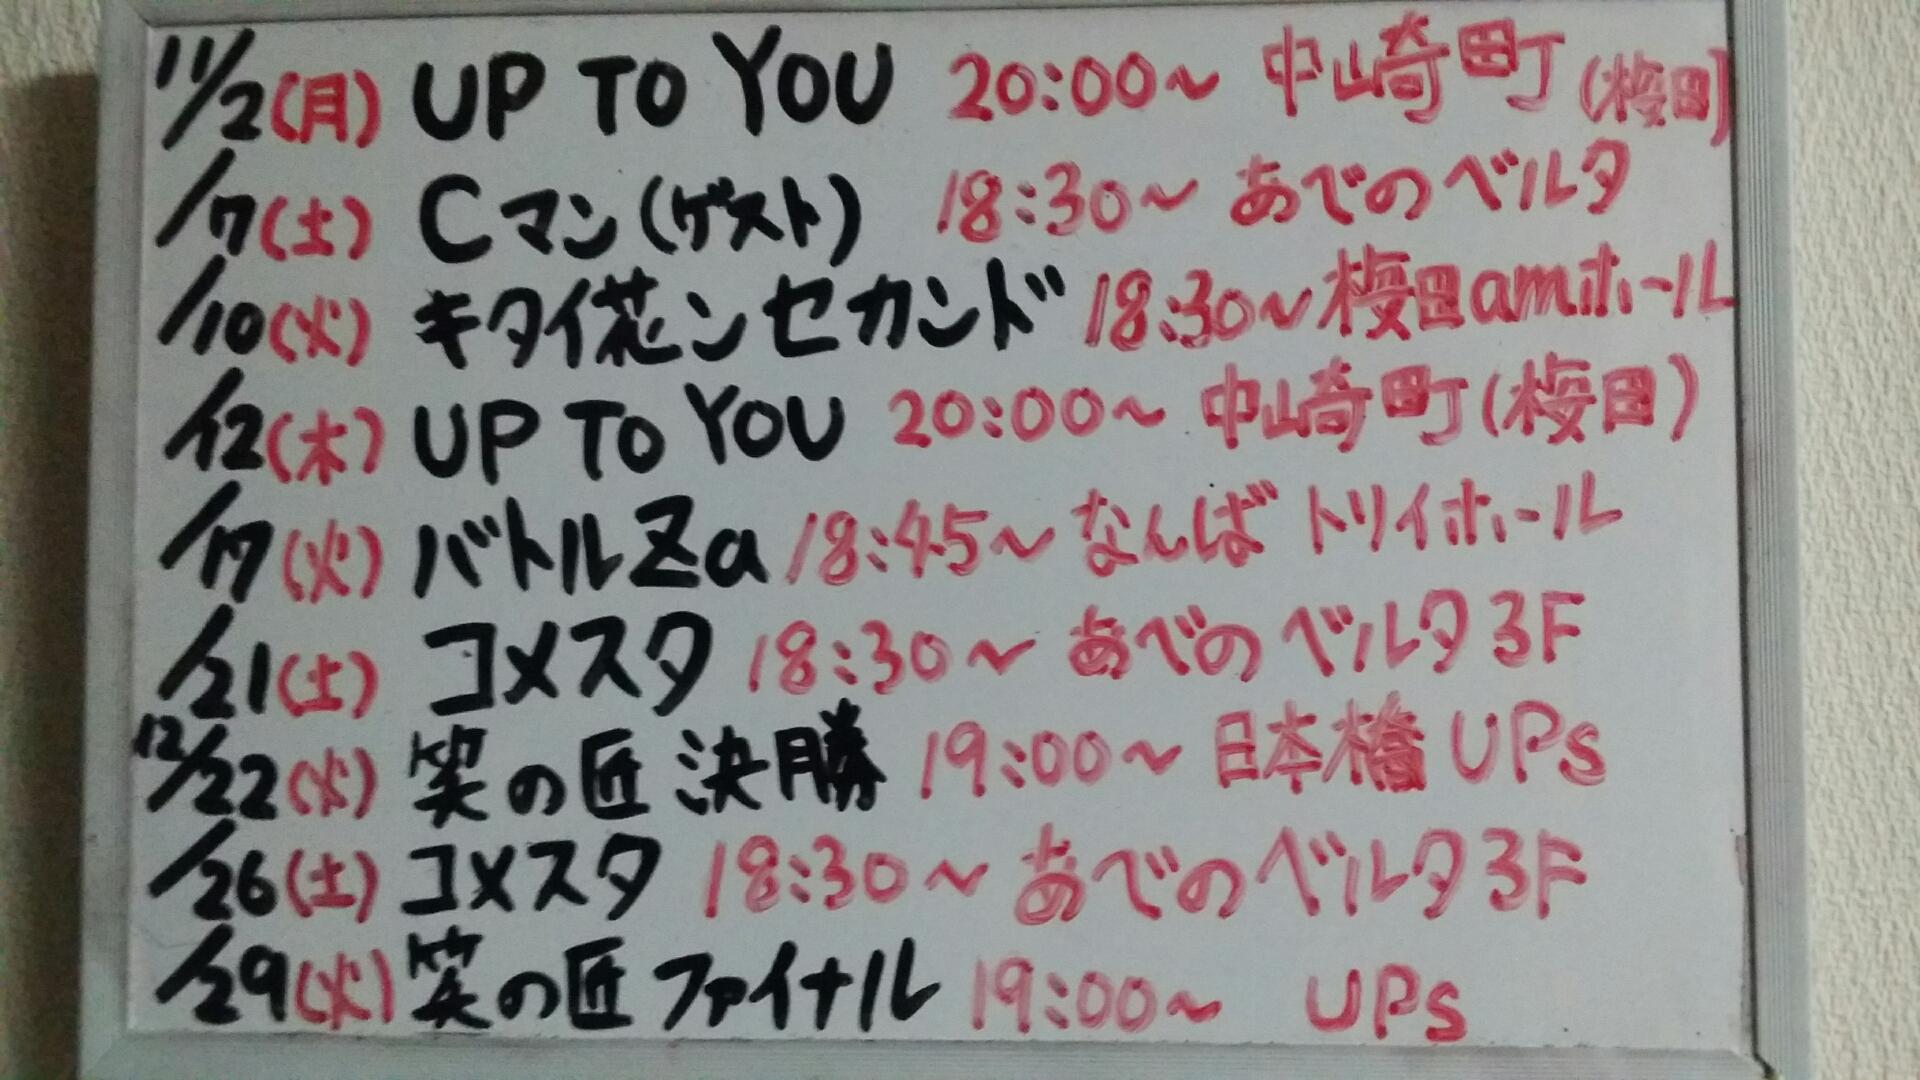 11/2(月) UP TO YOU 20:00〜 中山崎町(梅田)
/7(土) Cマン(ゲスト) 18:30〜 あべのベルタ
/10(火) キタイ花ンセカンド 18:30〜梅田amホール
/12(木) UP TO YOU 20:00〜 中山崎町(梅田)
/17(火) バトルZa 18:45〜 なんばトリイホール
/21(土) コメスタ 18:30〜 あべのベルタ3F
12/22(火) 笑の匠 決勝 19:00〜 日本橋UPs
/26(土) コメスタ 18:30〜 あべのベルタ3F
/29(火) 笑の匠 ファイナル 19:00〜 UPs